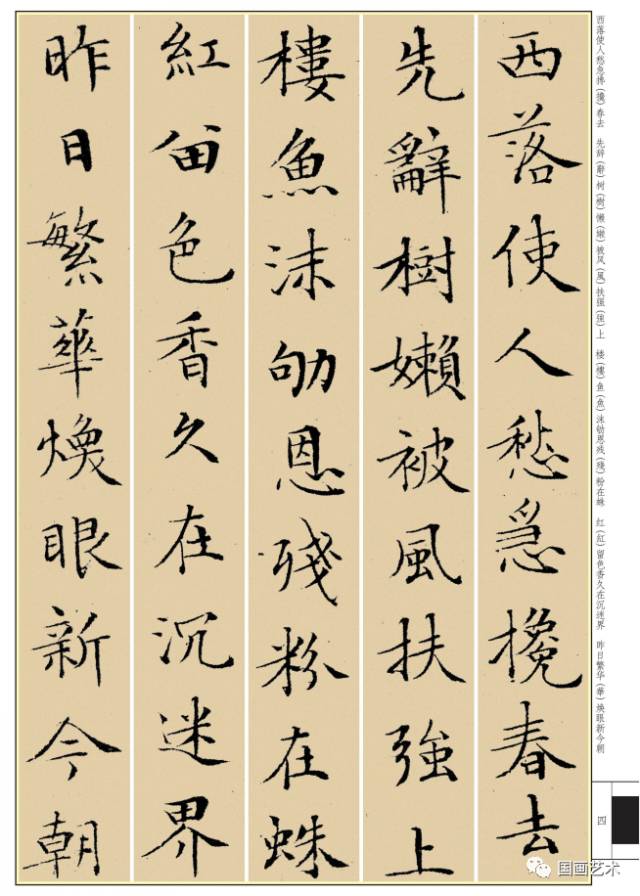 西落使人愁急搀(攙)春去　先辞(辭)树(樹)懒(嬾)被风(風)扶强(強)上　楼(樓)鱼(魚)沫劬恩残(殘)粉在蛛　红(紅)留色香久在沉迷界　昨日繁华(華)焕眼新今朝
西落使人愁急攙春去
先辭樹嬾被風扶強上
樓魚沫劬恩殘粉在蛛
紅留色香久在沉迷界
昨日繁華煥眼新今朝
四
国画艺术